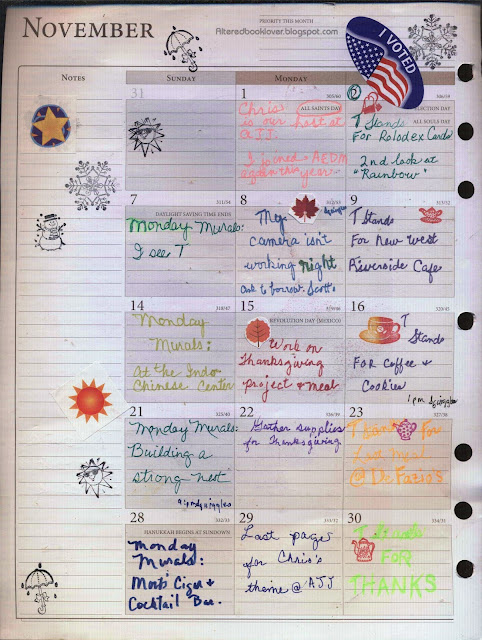 NOVEMBER
PRIORITY THIS MONTH
Alteredbooklover.blogspot.com
I VOTED
NOTES
SUNDAY
MONDAY
31
1
305/60
ALL SAINTS DAY
Chris
is our host at
AJJ.
I joined AEDM
again this year
2
306/59
ELECTION DAY
ALL SOULS DAY
T Stands
For Rolodex Cards
2nd look at
"Rainbow"
7
311/54
DAYLIGHT SAVING TIME ENDS
Monday Murals:
I see T
8
312/53
My
camera isn't
working right
ask to borrow Scott's
9
313/52
T Stands
For New West
Riverside Cafe
14
318/47
Monday
Murals:
at the Indo
Chinese Center
15
319/46
REVOLUTION DAY (MEXICO)
Work on
Thanksgiving
project & meal
16
320/45
T
Stands
FOR Coffee &
Cookies
1 pm Squiggles
21
325/40
Monday Murals:
Building a
strong nest
9 pm Squiggles
22
326/39
Gather supplies
for Thanksgiving
23
327/38
T Stands For
Last Meal
@ DeFazio's
28
332/33
HANUKKAH BEGINS AT SUNDOWN
Monday
Murals:
Mort's Cigar &
Cocktail Bar.
29
333/32
Last pages
for Chris's
theme @ AJJ
30
334/31
T Stands
FOR
THANKS